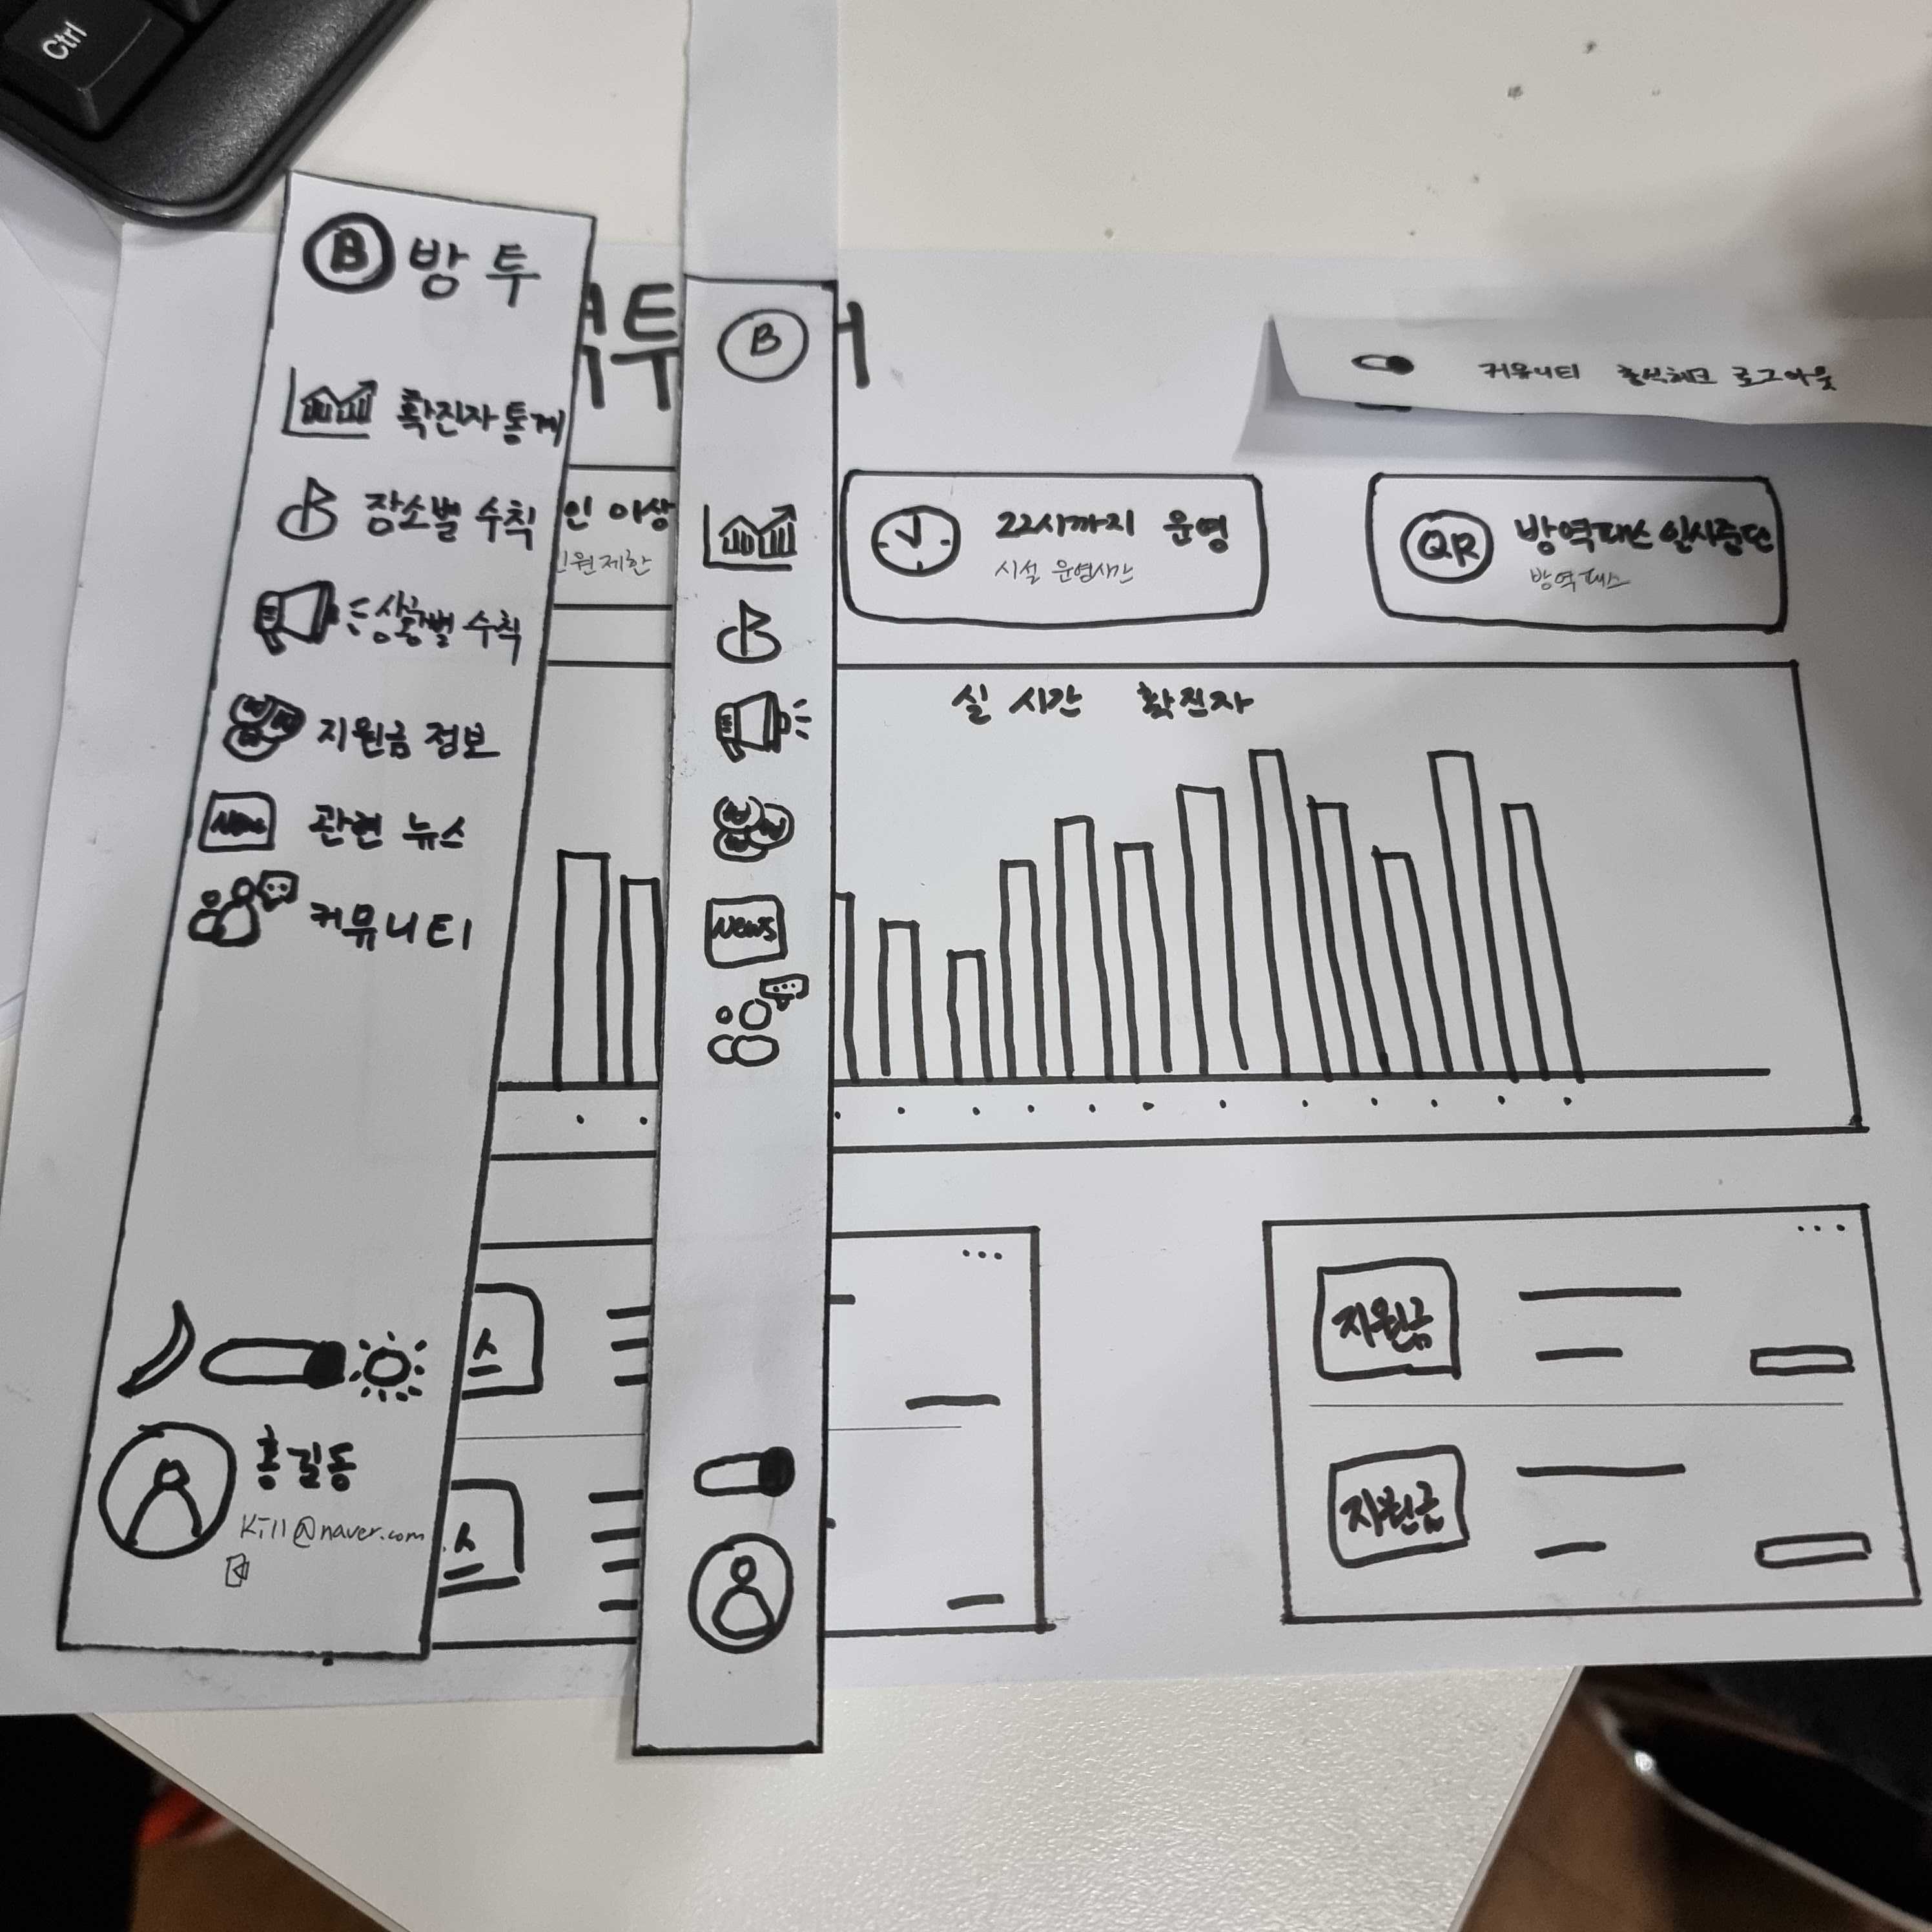 Ctrl
B 방투
확진자통계
장소별 수칙
상황별 수칙
지원금 정보
관련 뉴스
커뮤니티
홍길동
Kill@naver.com
투
B
News
커뮤니티 출석체크 로그아웃
인 이상
인원제한
22시까지 운영
시설 운영시간
QR 방역패스 일시중단
방역패스
실시간 확진자
스
스
지원금
지원금